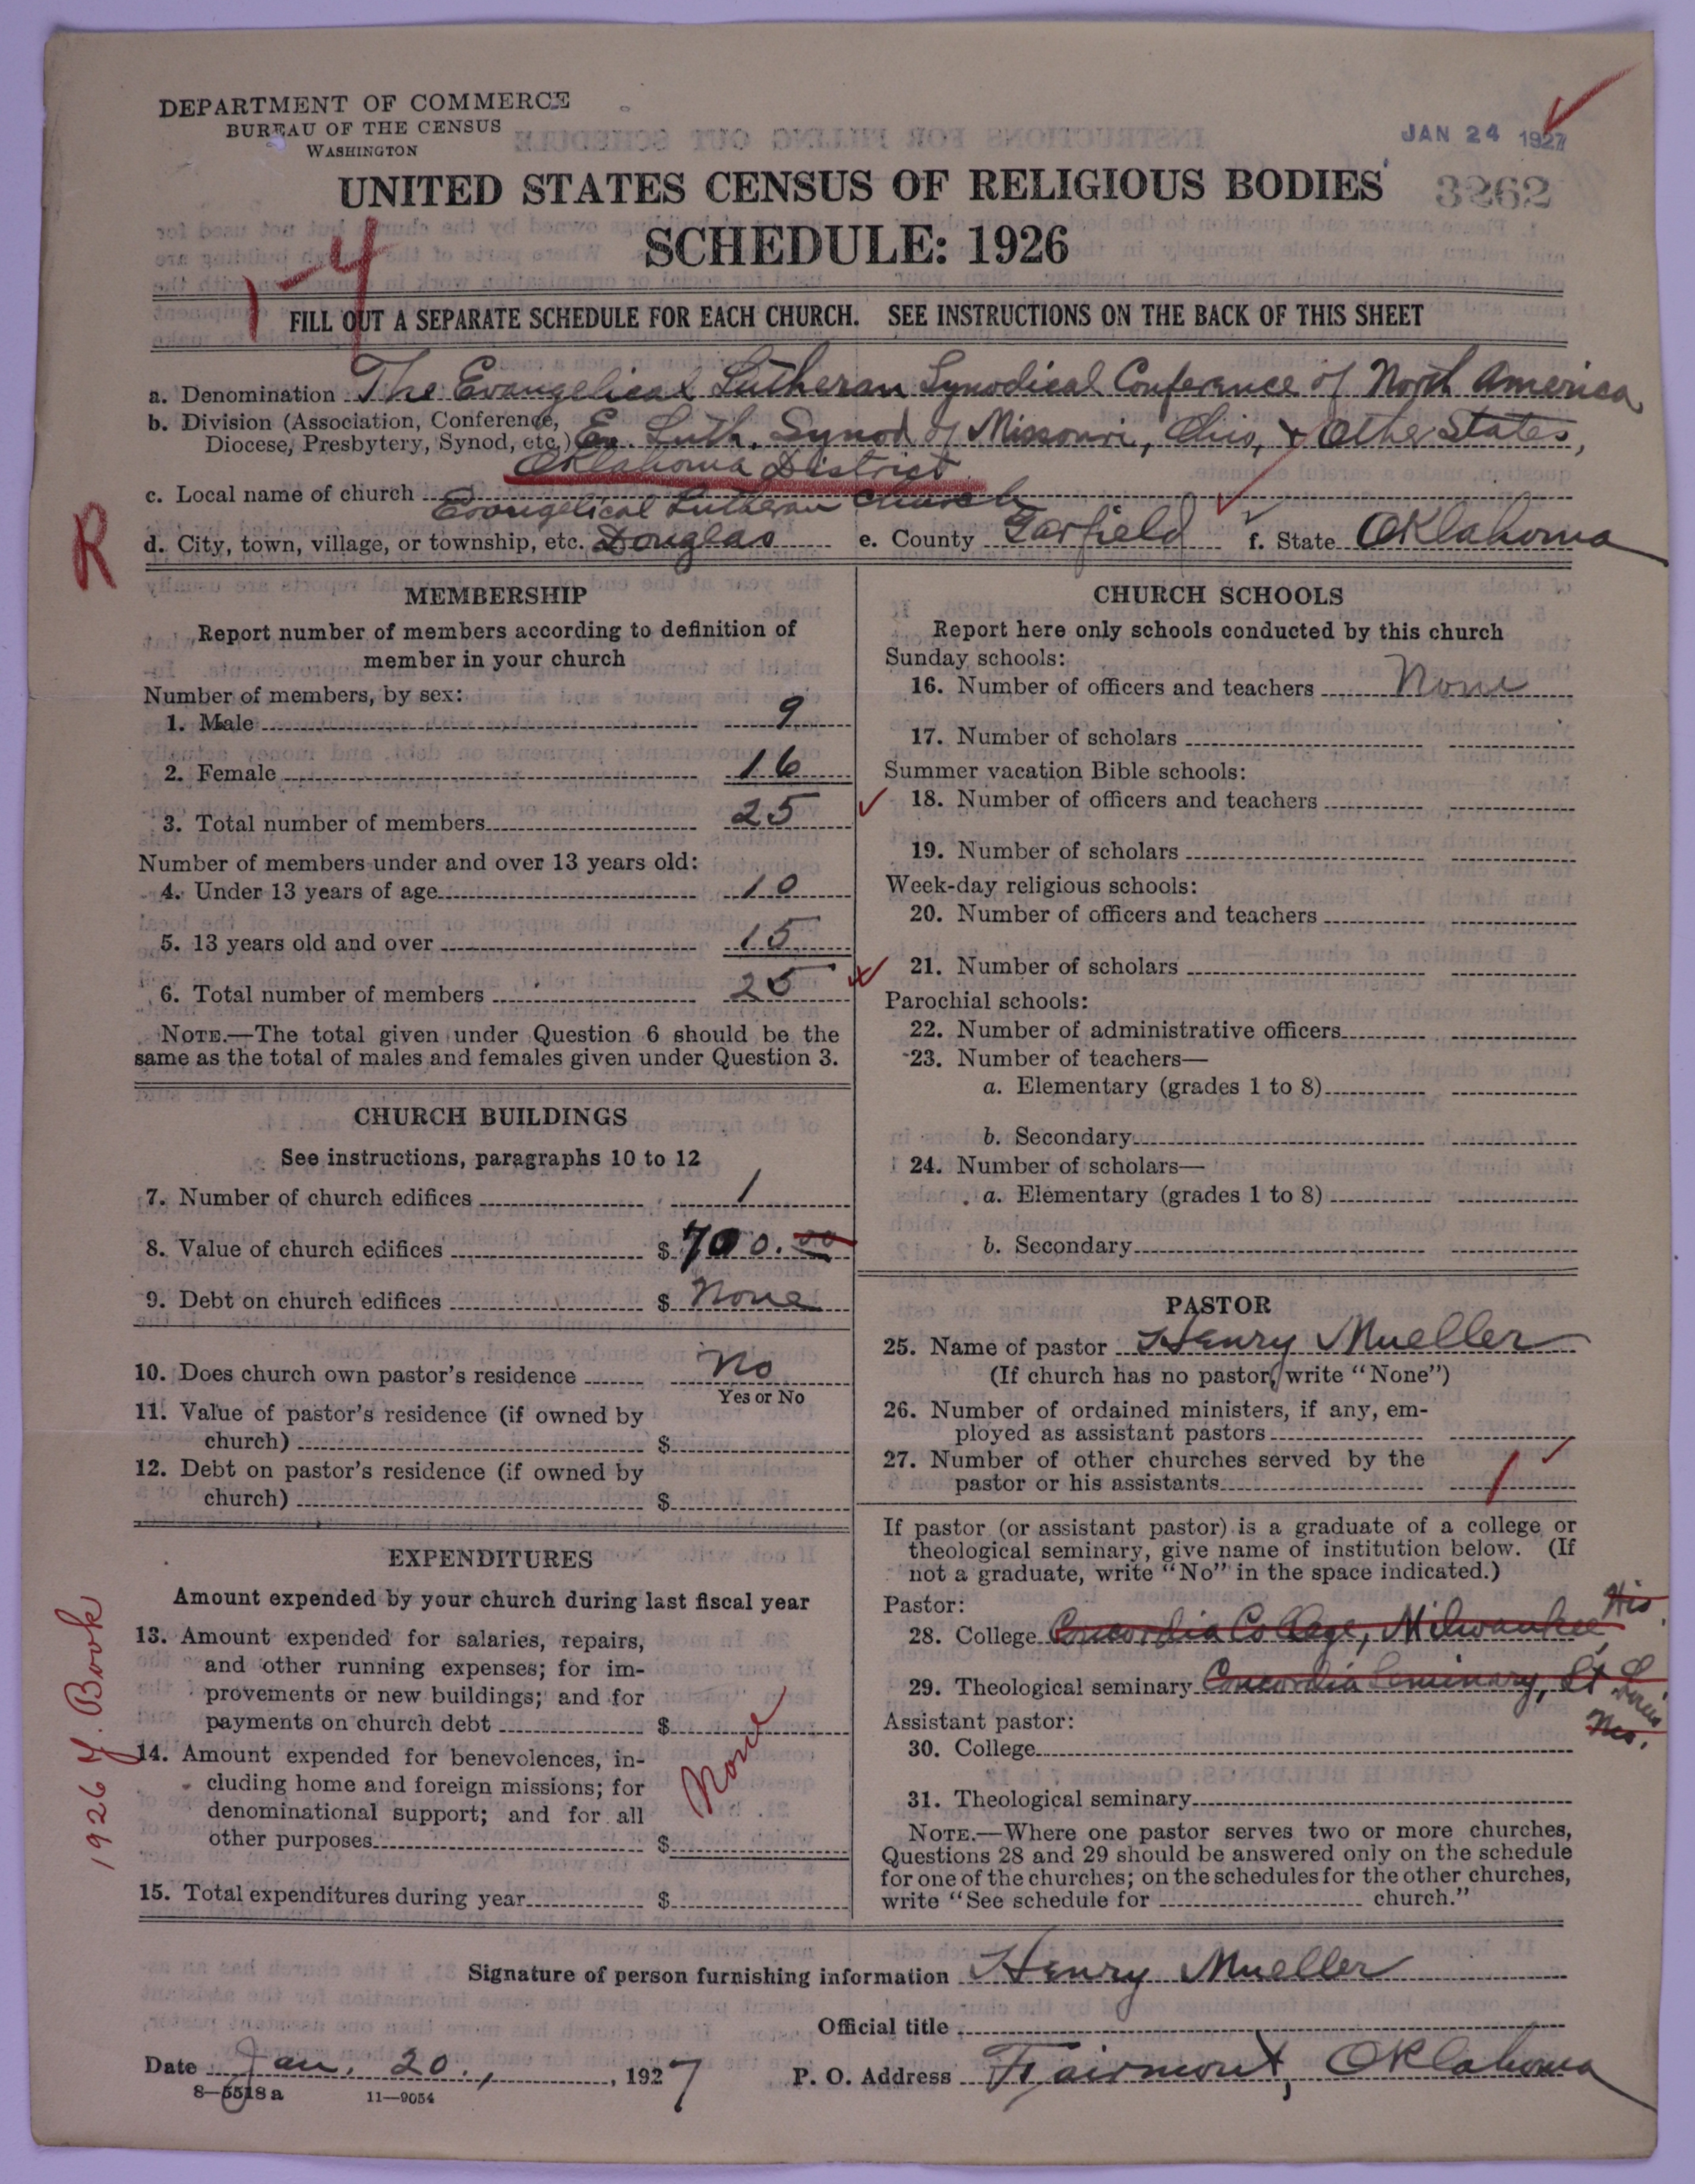 DEPARTMENT OF COMMERCE
BUREAU OF THE CENSUS
WASHINGTON
JAN 24 1927
UNITED STATES CENSUS OF RELIGIOUS BODIES
3262
SCHEDULE: 1926
1-4
FILL OUT A SEPARATE SCHEDULE FOR EACH CHURCH. SEE INSTRUCTIONS ON THE BACK OF THIS SHEET
a. Denomination The Evangelical Lutheran Synodical Conference of North America,
b. Division (Association, Conference,
Diocese, Presbytery, Synod, etc.) Ev. Luth. Synod of Missouri, Ohio, & Other States,
Oklahoma District
c. Local name of church Evangelical Lutheran Church
R
d. City, town, village, or township, etc. Douglas e. County Garfield f. State Oklahoma
MEMBERSHIP
Report number of members according to definition of
member in your church
Number of members, by sex:
1. Male 9
2. Female 16
3. Total number of members 25
Number of members under and over 13 years old:
4. Under 13 years of age 10
5. 13 years old and over 15
6. Total number of members 25
NOTE.—The total given under Question 6 should be the
same as the total of males and females given under Question 3.
CHURCH BUILDINGS
See instructions, paragraphs 10 to 12
7. Number of church edifices 1
8. Value of church edifices $ 700.00
9. Debt on church edifices $ None
10. Does church own pastor's residence No
Yes or No
11. Value of pastor's residence (if owned by
church) $
12. Debt on pastor's residence (if owned by
church) $
EXPENDITURES
Amount expended by your church during last fiscal year
13. Amount expended for salaries, repairs,
and other running expenses; for im-
provements or new buildings; and for
payments on church debt $
14. Amount expended for benevolences, in-
cluding home and foreign missions; for
denominational support; and for all
other purposes $
None
15. Total expenditures during year $
1926 Y. Book
CHURCH SCHOOLS
Report here only schools conducted by this church
Sunday schools:
16. Number of officers and teachers None
17. Number of scholars
Summer vacation Bible schools:
18. Number of officers and teachers
19. Number of scholars
Week-day religious schools:
20. Number of officers and teachers
21. Number of scholars
Parochial schools:
22. Number of administrative officers
23. Number of teachers—
a. Elementary (grades 1 to 8)
b. Secondary
24. Number of scholars—
a. Elementary (grades 1 to 8)
b. Secondary
PASTOR
25. Name of pastor Henry Mueller
(If church has no pastor, write "None")
26. Number of ordained ministers, if any, em-
ployed as assistant pastors
27. Number of other churches served by the
pastor or his assistants 1
If pastor (or assistant pastor) is a graduate of a college or
theological seminary, give name of institution below. (If
not a graduate, write "No" in the space indicated.)
Pastor:
28. College Concordia College, Milwaukee, Wis.
29. Theological seminary Concordia Seminary, St Louis
Mo.
Assistant pastor:
30. College
31. Theological seminary
NOTE.—Where one pastor serves two or more churches,
Questions 28 and 29 should be answered only on the schedule
for one of the churches; on the schedules for the other churches,
write "See schedule for church."
Signature of person furnishing information Henry Mueller
Official title
Date Jan. 20., 1927 P. O. Address Fairmont, Oklahoma
8—5518 a 11—9054